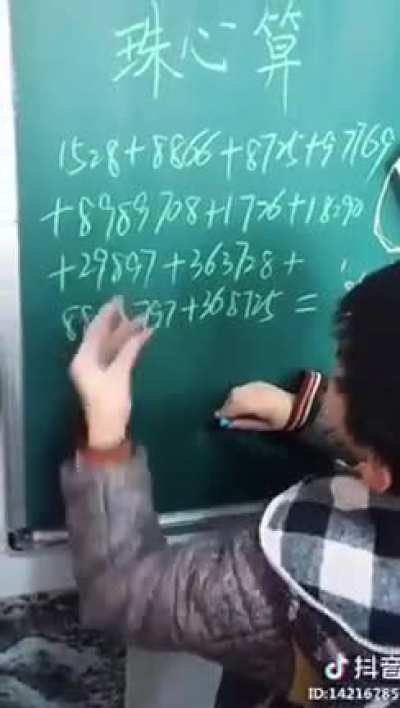 珠心算
1528+8866+8725+97769
+8989708+1726+18290
+29897+363728+
+368725=
抖音
ID:14216785